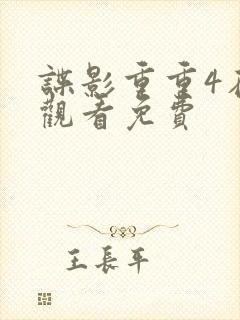 諜影重重4
觀看免費
王長平